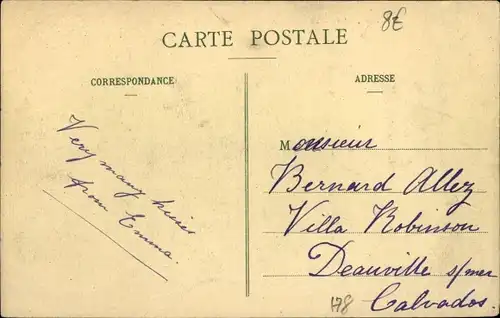 8€
CARTE POSTALE
CORRESPONDANCE
ADRESSE
Very many kisses
from Emma.
Monsieur
Bernard Allez
Villa Robinson
Deauville s/mer
178
Calvados.